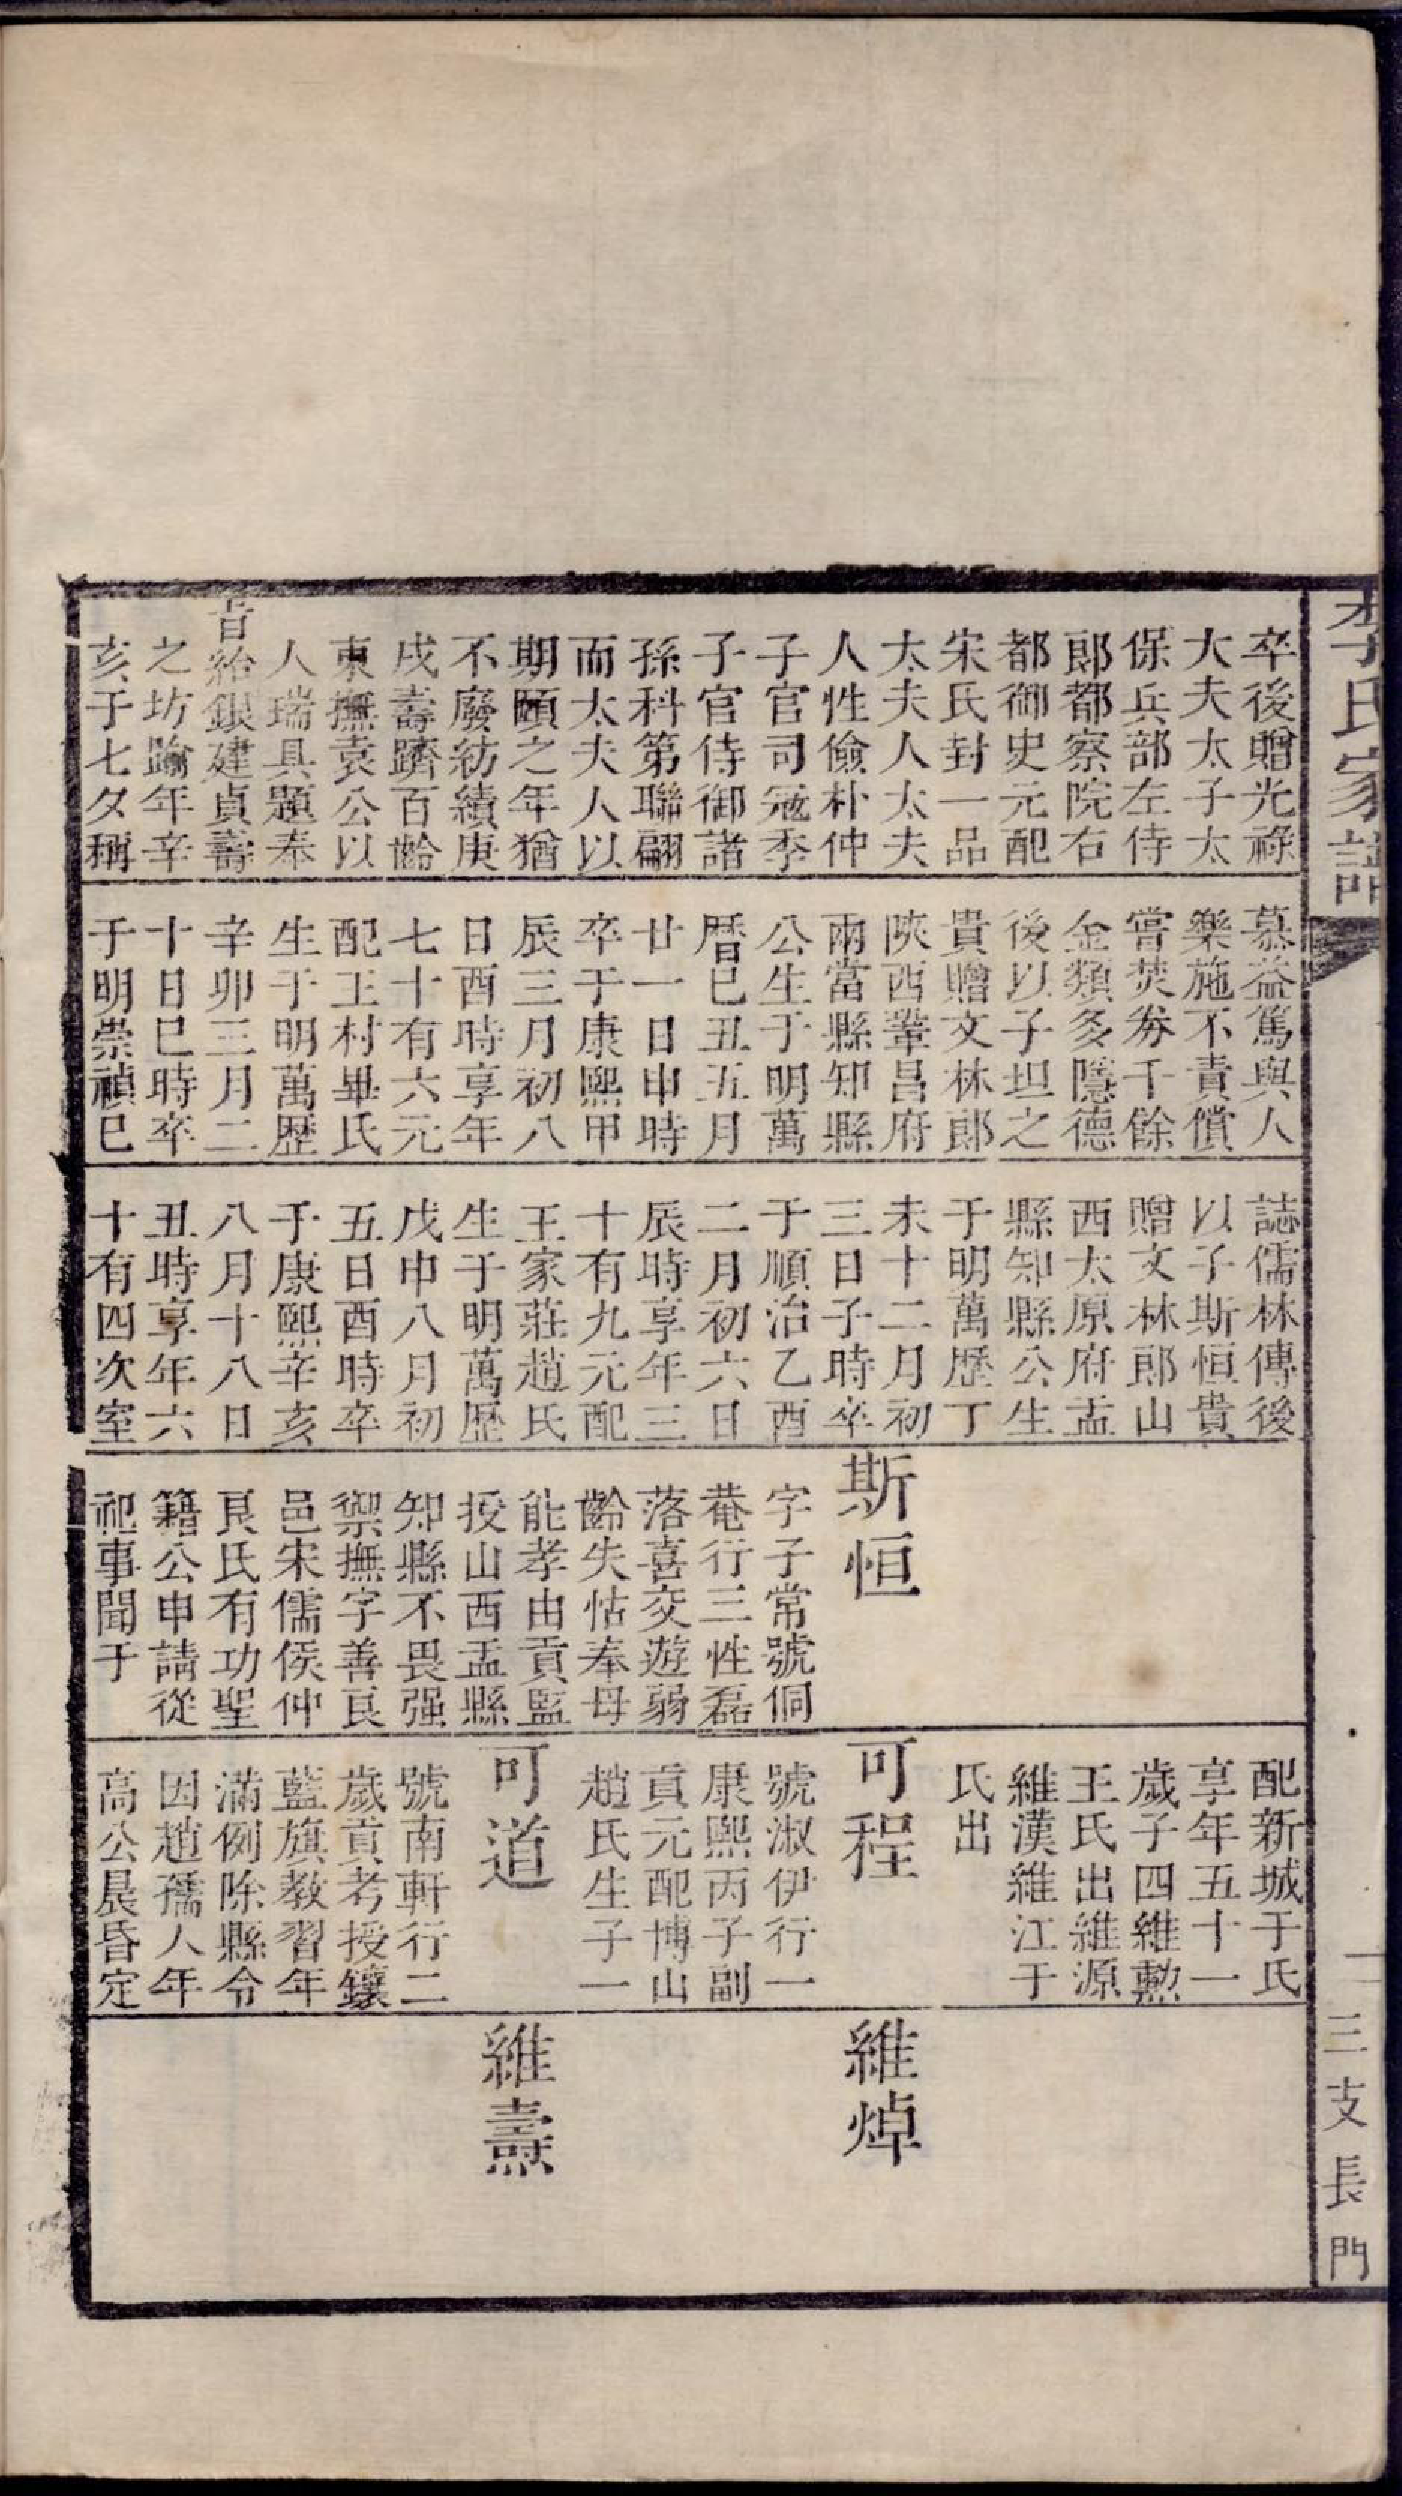 李氏家譜
三支長門
卒後贈光祿
大夫太子太
保兵部左侍
郎都察院右
都御史元配
宋氏封一品
太夫人太夫
人性儉朴仲
子官司寇季
子官侍御諸
孫科第聯翩
而太夫人以
期頤之年猶
不廢紡績庚
戌壽躋百齡
東撫袁公以
人瑞具題奉
旨給銀建貞壽
之坊踰年辛
亥于七夕稱
慕益篤與人
樂施不責償
嘗焚券千餘
金類多隱德
後以子坦之
貴贈文林郎
陝西鞏昌府
兩當縣知縣
公生于明萬
曆巳丑五月
廿一日申時
卒于康熙甲
辰三月初八
日酉時享年
七十有六元
配王村畢氏
生于明萬歷
辛卯三月二
十日巳時卒
于明崇禎巳
誌儒林傳後
以子斯恒貴
贈文林郎山
西太原府盂
縣知縣公生
于明萬歷丁
未十二月初
三日子時卒
于順治乙酉
二月初六日
辰時享年三
十有九元配
王家莊趙氏
生于明萬歷
戊申八月初
五日酉時卒
于康熙辛亥
八月十八日
丑時享年六
十有四次室
斯恒
字子常號侗
菴行三性磊
落喜交遊弱
齡失怙奉母
能孝由貢監
授山西盂縣
知縣不畏强
禦撫字善良
邑宋儒侯仲
良氏有功聖
籍公申請從
祀事聞于
配新城于氏
享年五十一
歲子四維勲
王氏出維源
維漢維江于
氏出
可程
號淑伊行一
康熙丙子副
貢元配博山
趙氏生子一
可道
號南軒行二
歲貢考授鑲
藍旗教習年
滿例除縣令
因趙孺人年
高公晨昏定
維焯
維燾